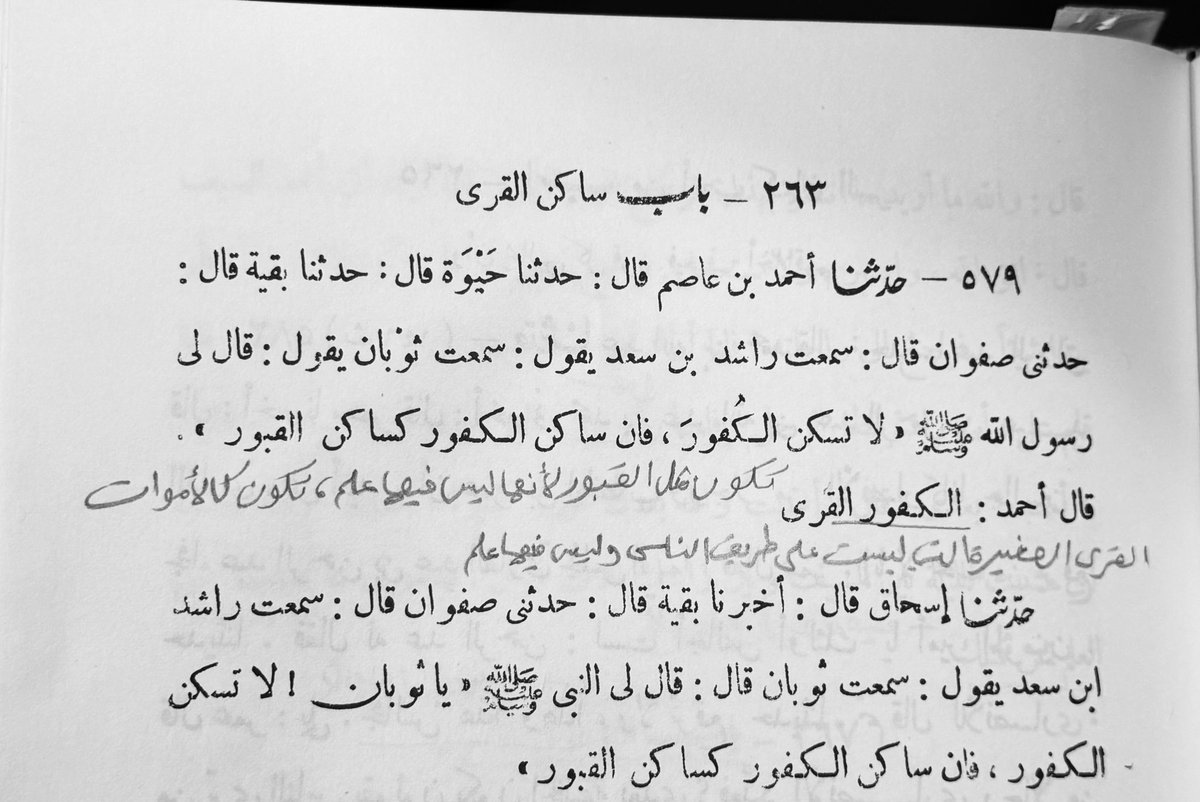 ٢٦٣ – باب ساكن القرى
٥٧٩ – حدّثنا أحمد بن عاصم قال : حدثنا حَيْوَة قال : حدثنا بقية قال :
حدثنى صفوان قال : سمعت راشد بن سعد يقول : سمعت ثوْبان يقول : قال لى
رسول الله ﷺ « لا تسكن الكُفورَ ، فان ساكن الكفور كساكن القبور » .
تكون مثل القبور لأنها ليس فيها علم ، تكون كالأموات
قال أحمد : الكفور القرى
القرى الصغيرة التي ليست على طريق الناس وليس فيها علم
حدّثنا إسحاق قال : أخبرنا بقية قال : حدثنى صفوان قال : سمعت راشد
ابن سعد يقول : سمعت ثوبان قال : قال لى النبي ﷺ « يا ثوبان ! لا تسكن
الكفور ، فان ساكن الكفور كساكن القبور »